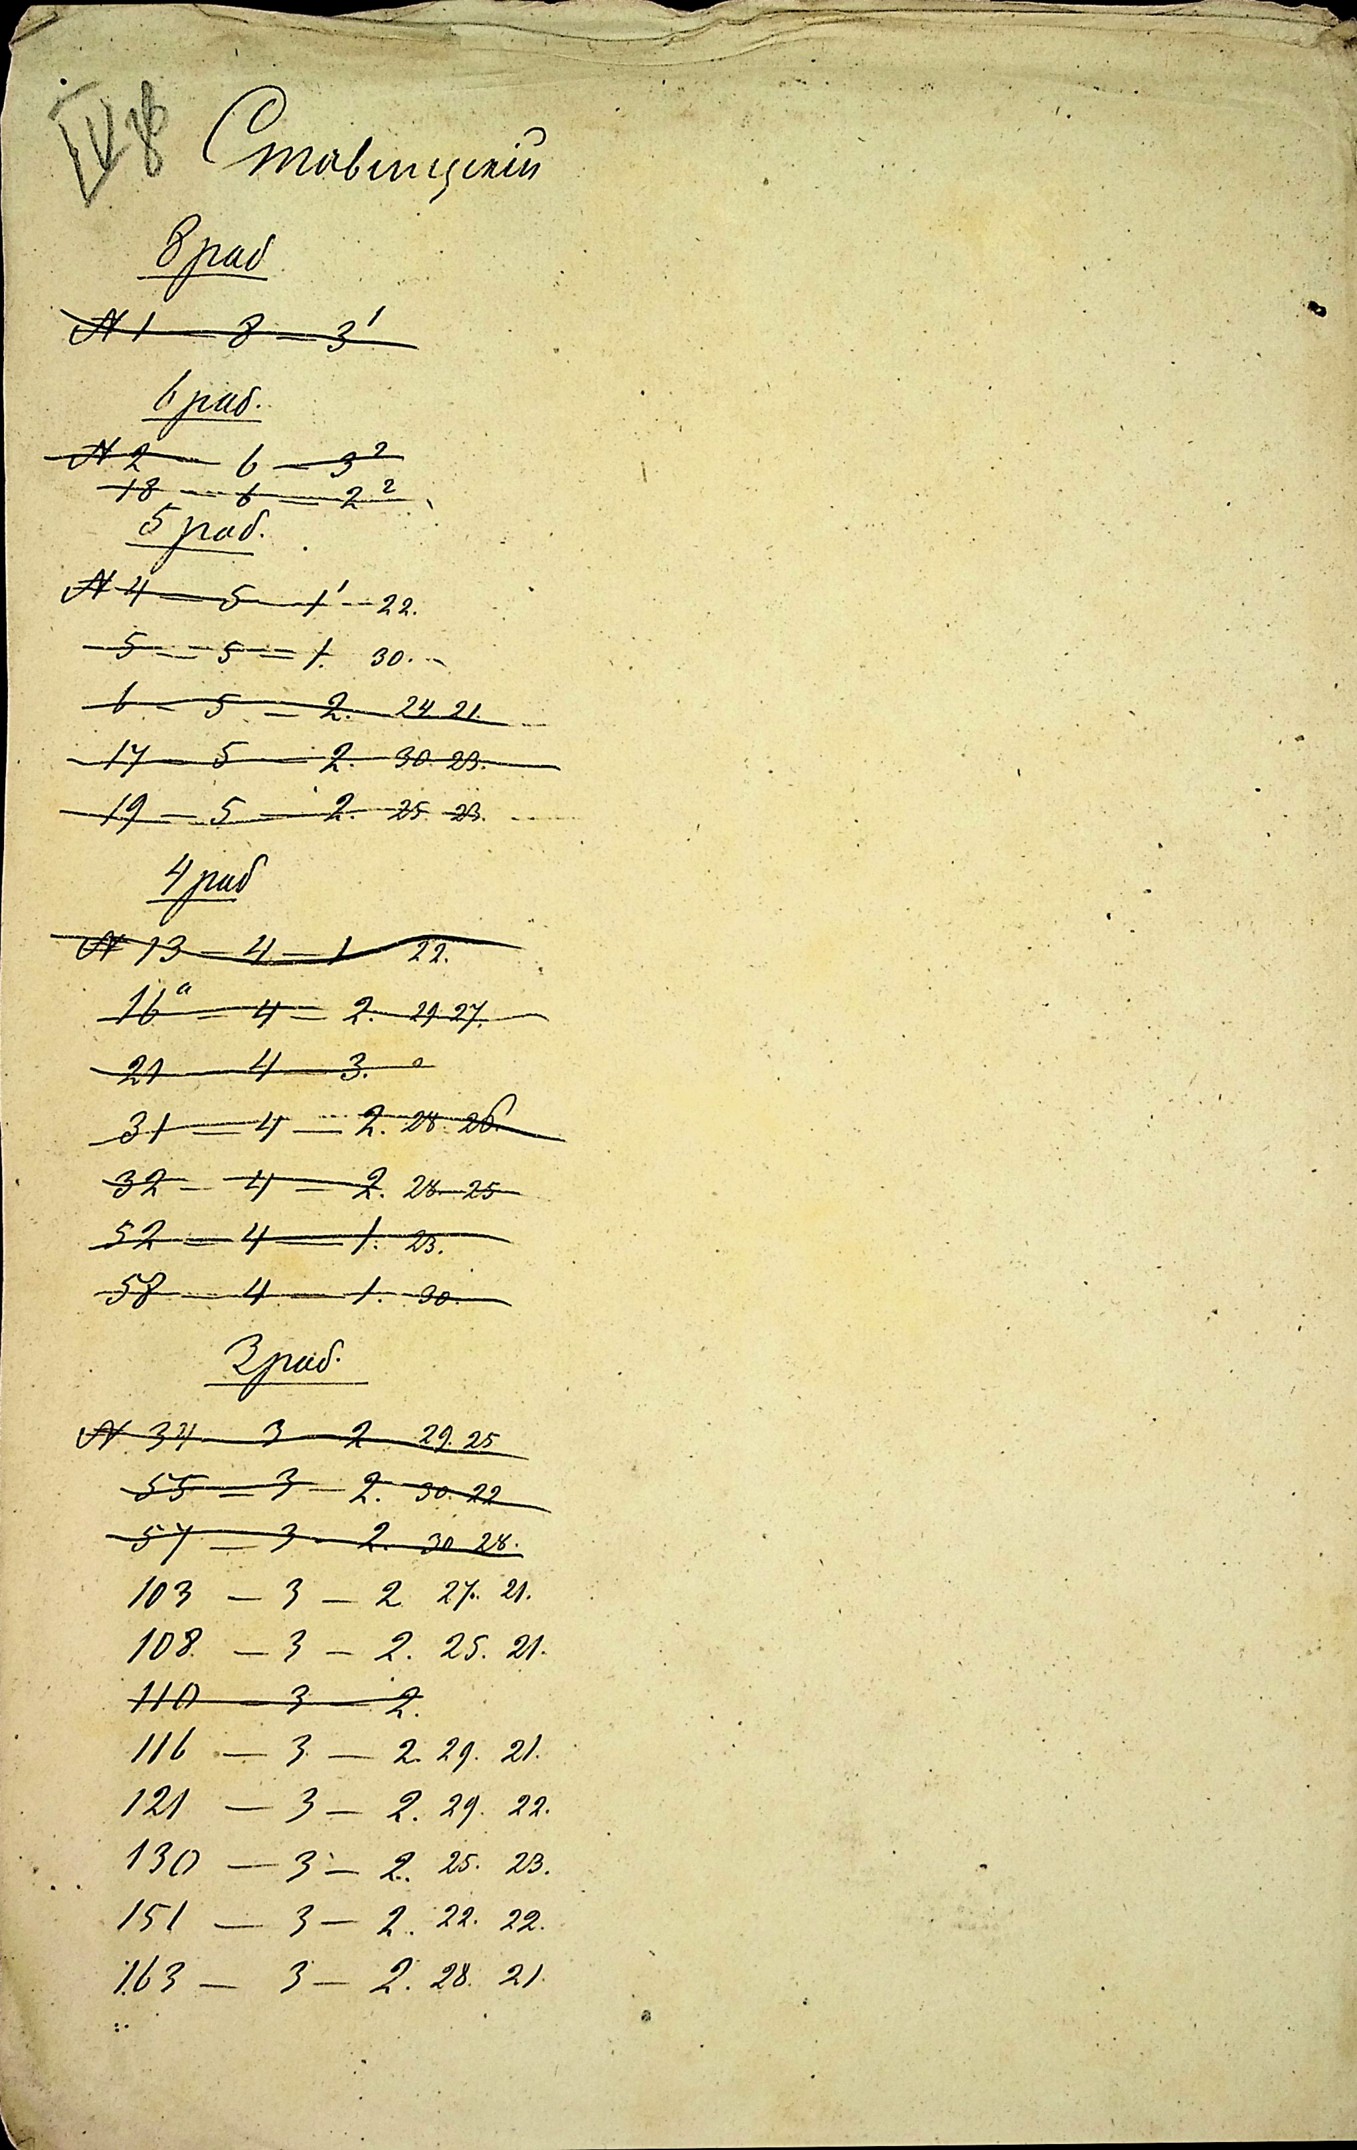 Ставищскій
8 раб
N 1 – 8 – 3¹
6 раб.
N 2 – 6 – 3²
18 – 6 – 2²
5 раб.
N 4 – 5 – 1¹ – 22.
5 – 5 – 1. 30.
6 – 5 – 2. 24. 21.
17 – 5 – 2. 30. 23.
19 – 5 – 2. 25. 23.
4 раб
N 13 – 4 – 1 22.
16ᵃ – 4 – 2. 29. 27.
21 – 4 – 3.
31 – 4 – 2. 28. 26.
32 – 4 – 2. 28. 25
52 – 4 – 1. 23.
58 – 4 – 1. 30.
3 раб.
N 34 – 3 – 2 29. 25
55 – 3 – 2. 30. 22
57 – 3 – 2. 30 28.
103 – 3 – 2 27. 21.
108. – 3 – 2. 25. 21.
110 – 3 – 2.
116 – 3 – 2. 29. 21.
121 – 3 – 2. 29. 22.
130 – 3 – 2. 25. 23.
151 – 3 – 2. 22. 22.
163 – 3 – 2. 28. 21.